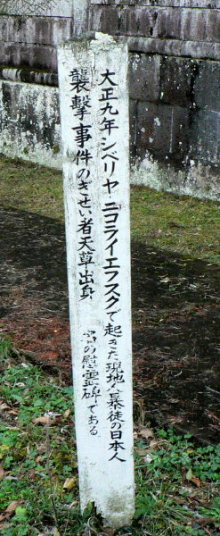 大正九年シベリヤ・ニコライエフスクで起きた現地人暴徒の日本人
襲撃事件のぎせい者天草出身
の慰霊碑である